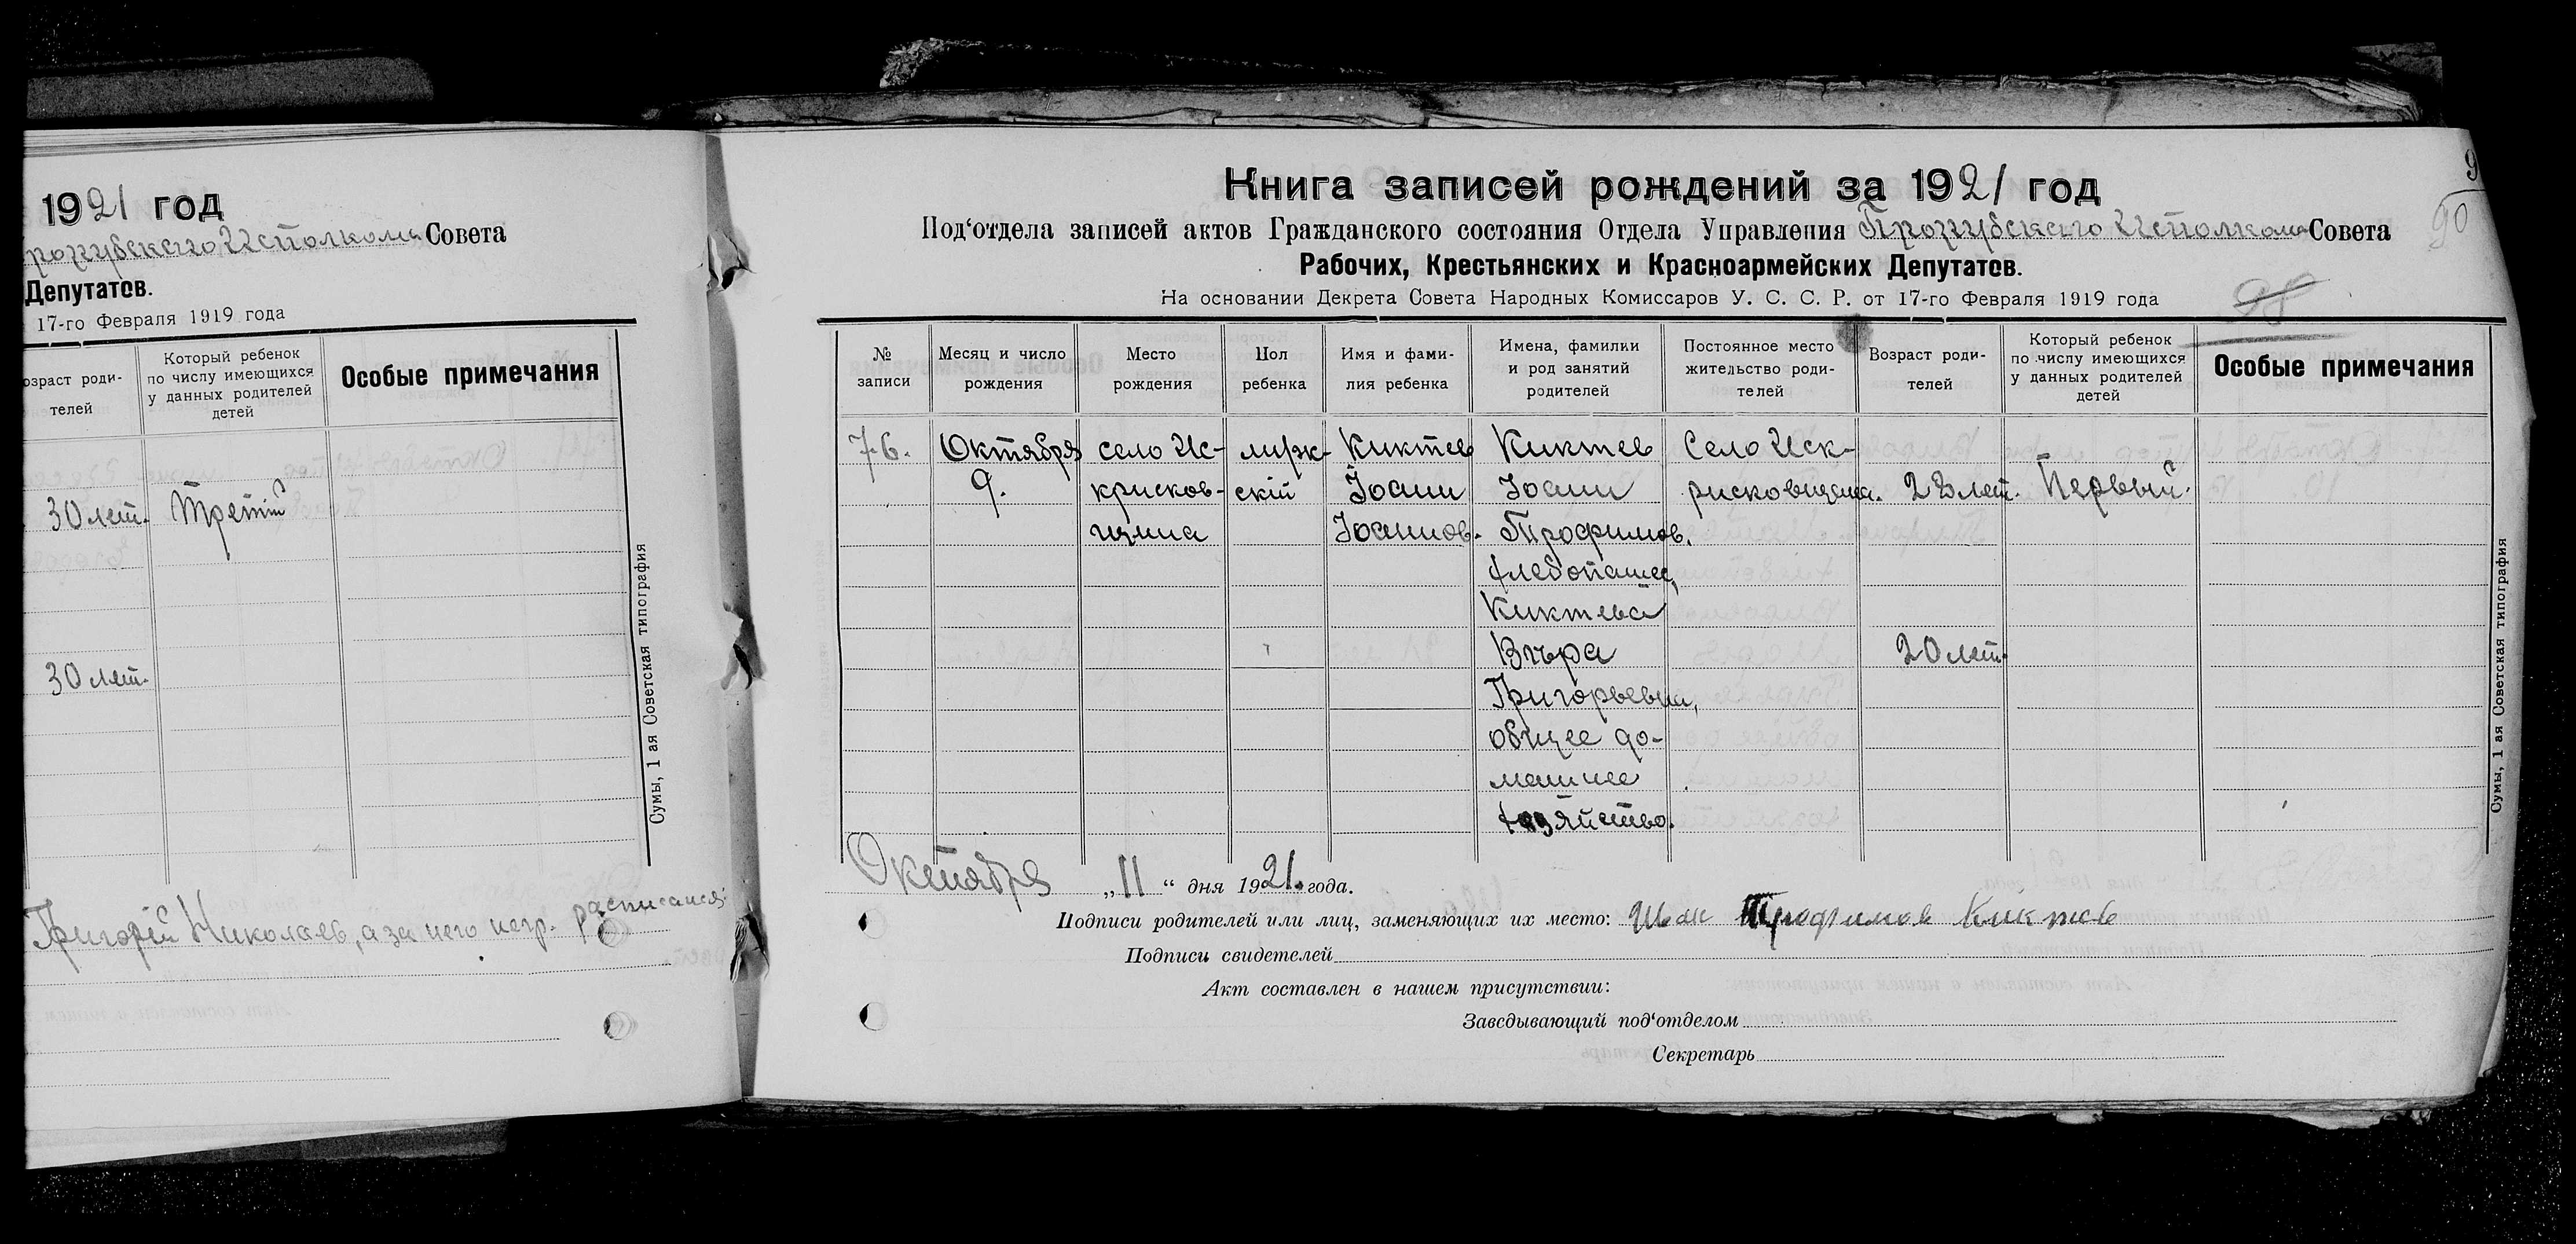 1921 год
розкубскаго Исполкома Совета
Депутатов.
17-го Февраля 1919 года
озраст роди-
телей
Который ребенок
по числу имеющихся
у данных родителей
детей
Особые примечания
30 лет. Третій
30 лет.
Сумы, 1 ая Советская типография
Григорій Николаев, а за него негр. расписался:
Книга записей рождений за 1921 год
Под‘отдела записей актов Гражданского состояния Отдела Управления Исполкома Совета
Рабочих, Крестьянских и Красноармейских Депутатов.
На основании Декрета Совета Народных Комиссаров У. С. С. Р. от 17-го Февраля 1919 года
9
90
98
№
записи
Месяц и число
рождения
Место
рождения
Пол
ребенка
Имя и фами-
лия ребенка
Имена, фамилии
и род занятий
родителей
Постоянное место
жительство роди-
телей
Возраст роди-
телей
Который ребенок
по числу имеющихся
у данных родителей
детей
Особые примечания
76. Октября село Ис- муж- Киктев Киктев Село Иск-
9. крисков- скій Іоанн Іоанн рисковщина. лет. Первый.
щина Іоаннов. Трофимов,
хлебопашец,
Киктева
Вѣра 20 лет.
Григорьевна,
общее до-
машнее
хозяйство.
Октября „11“ дня 1921. года.
Подписи родителей или лиц, заменяющих их место: Иван Трофимов Киктев
Подписи свидетелей
Акт составлен в нашем присутствии:
Заведывающий под‘отделом
Секретарь
Сумы, 1 ая Советская типография